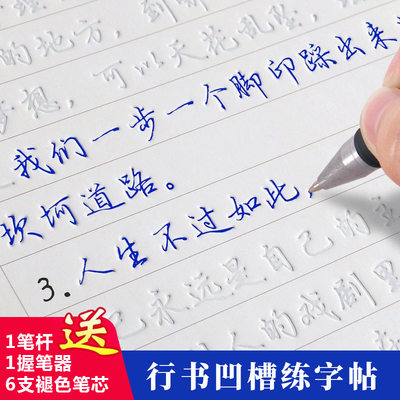 的地方，到
想，可以天花乱坠，
我们一步一个脚印踩出来
坎坷道路。
3.人生不过如此，
永远是自己的主
人的戏剧里
1笔杆
1握笔器
6支褪色笔芯
送
行书凹槽练字帖